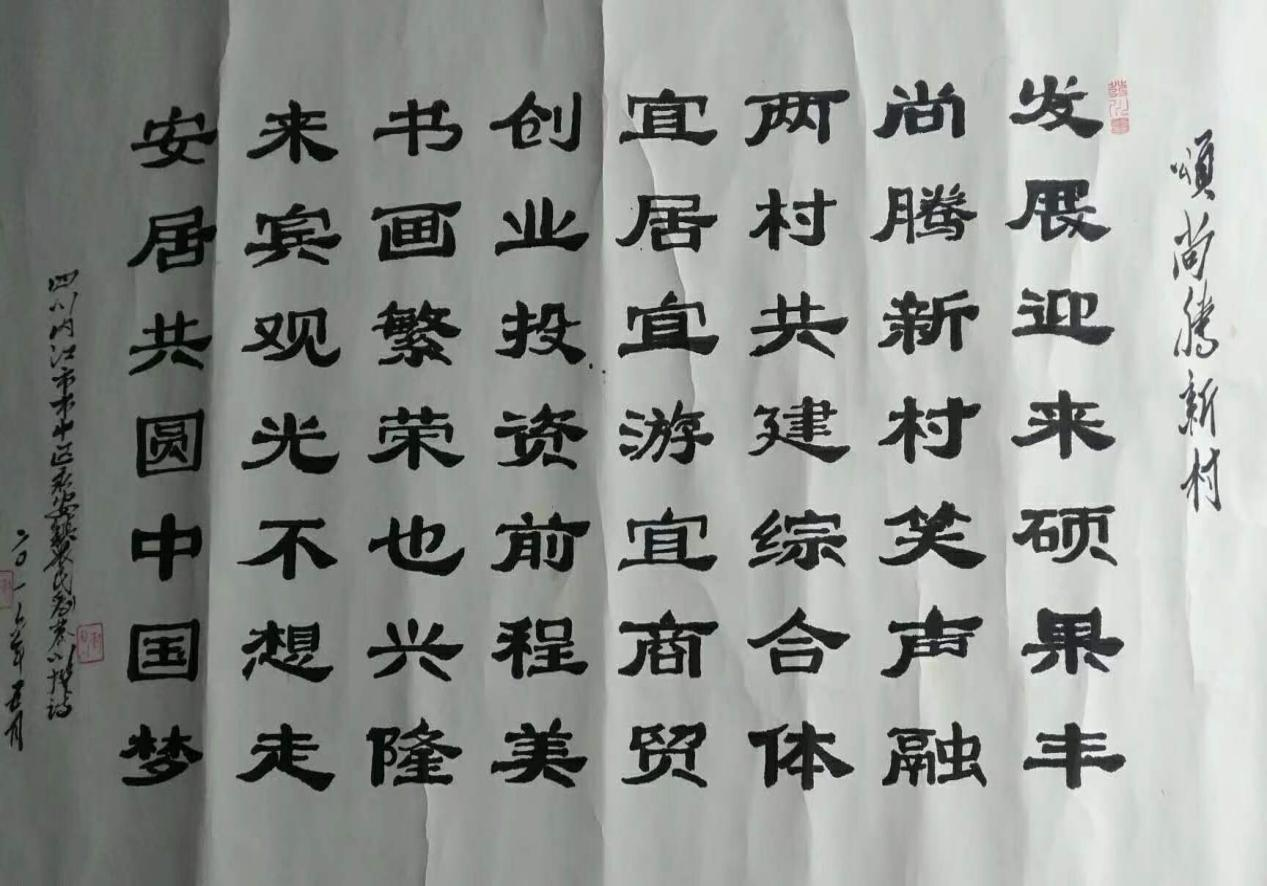 頌尚腾新村
发展迎来硕果丰
尚腾新村笑声融
两村共建综合体
宜居宜游宜商贸
创业投资前程美
书画繁荣也兴隆
来宾观光不想走
安居共圆中国梦
四川内江市市中区永安镇农民
二0一六年五月